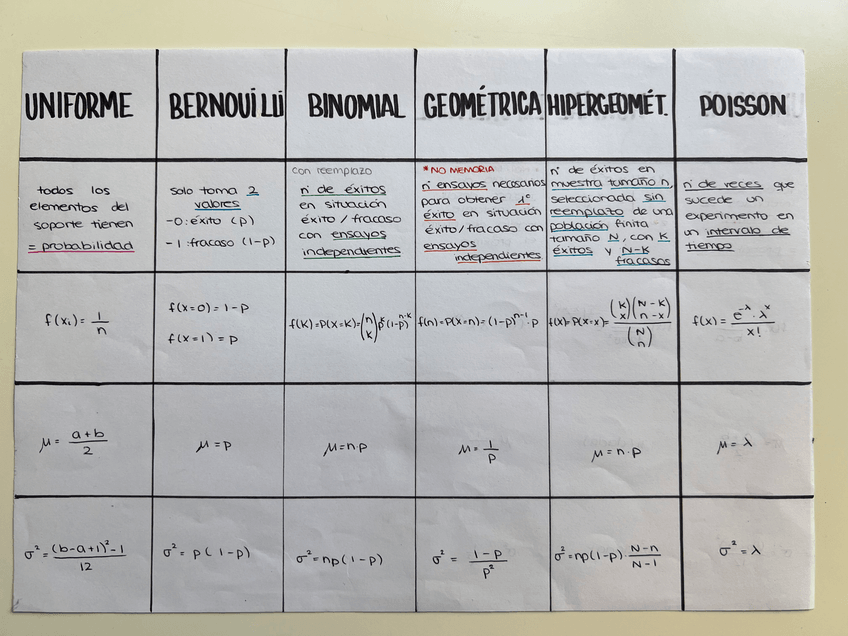 UNIFORME
BERNOUILLI
BINOMIAL
GEOMÉTRICA
HIPERGEOMÉT.
POISSON
todos los
elementos del
soporte tienen
= probabilidad
Solo toma 2
valores
-0: éxito (p)
-1: fracaso (1-p)
con reemplazo
nº de éxitos
en situación
éxito / fracaso
con ensayos
independientes
*NO MEMORIA
nº ensayos necesarios
para obtener 1º
éxito en situación
éxito/fracaso con
ensayos
independientes
nº de éxitos en
muestra tamaño n,
seleccionada sin
reemplazo de una
población finita
tamaño N, con K
éxitos y N-K
fracasos
nº de veces que
sucede un
experimento en
un intervalo de
tiempo
f(xᵢ) = 1/n
f(x=0) = 1-p
f(x=1) = p
f(k)=P(X=k)=(n k)p^k(1-p)^n-k
f(n)=P(X=n)=(1-p)^n-1·p
f(x)=P(X=x)=(K x)(N-K n-x)/(N n)
f(x) = e^-λ·λ^x/x!
μ = a+b/2
μ = p
μ=n·p
μ = 1/p
μ = n·p
μ = λ
σ² = (b-a+1)²-1/12
σ² = p(1-p)
σ²=np(1-p)
σ² = 1-p/p²
σ²=np(1-p)·N-n/N-1
σ² = λ